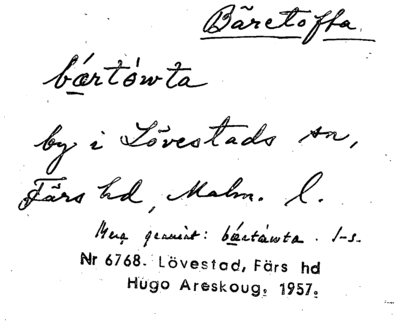 Bäretofta
bǽrtåwta
by i Lövestads sn,
Färs hd, Malm. l.
bǽrtåwta. I-s.
Nr 6768. Lövestad, Färs hd
Hugo Areskoug, 1957.